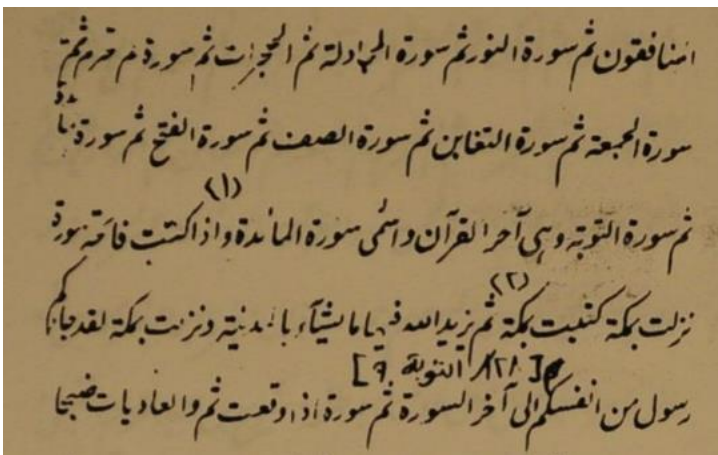 المنافقون ثم سورة النور ثم سورة المجادلة ثم الحجرات ثم سورة لم تحرم ثم
سورة الجمعة ثم سورة التغابن ثم سورة الصف ثم سورة الفتح ثم سورة مائدة
(١)
ثم سورة التوبة وهى آخر القرآن واسمى سورة المائدة واذا كتبت فاتحة سورة
(٢)
نزلت بمكة كتبت بمكة ثم يزيد الله فيها ما يشآء بالمدينة ونزلت بمكة لقد جاءكم
[١٢٨/ التوبة ٩]
رسول من انفسكم الى آخر السورة ثم سورة اذا وقعت ثم والعاديات ضبحا